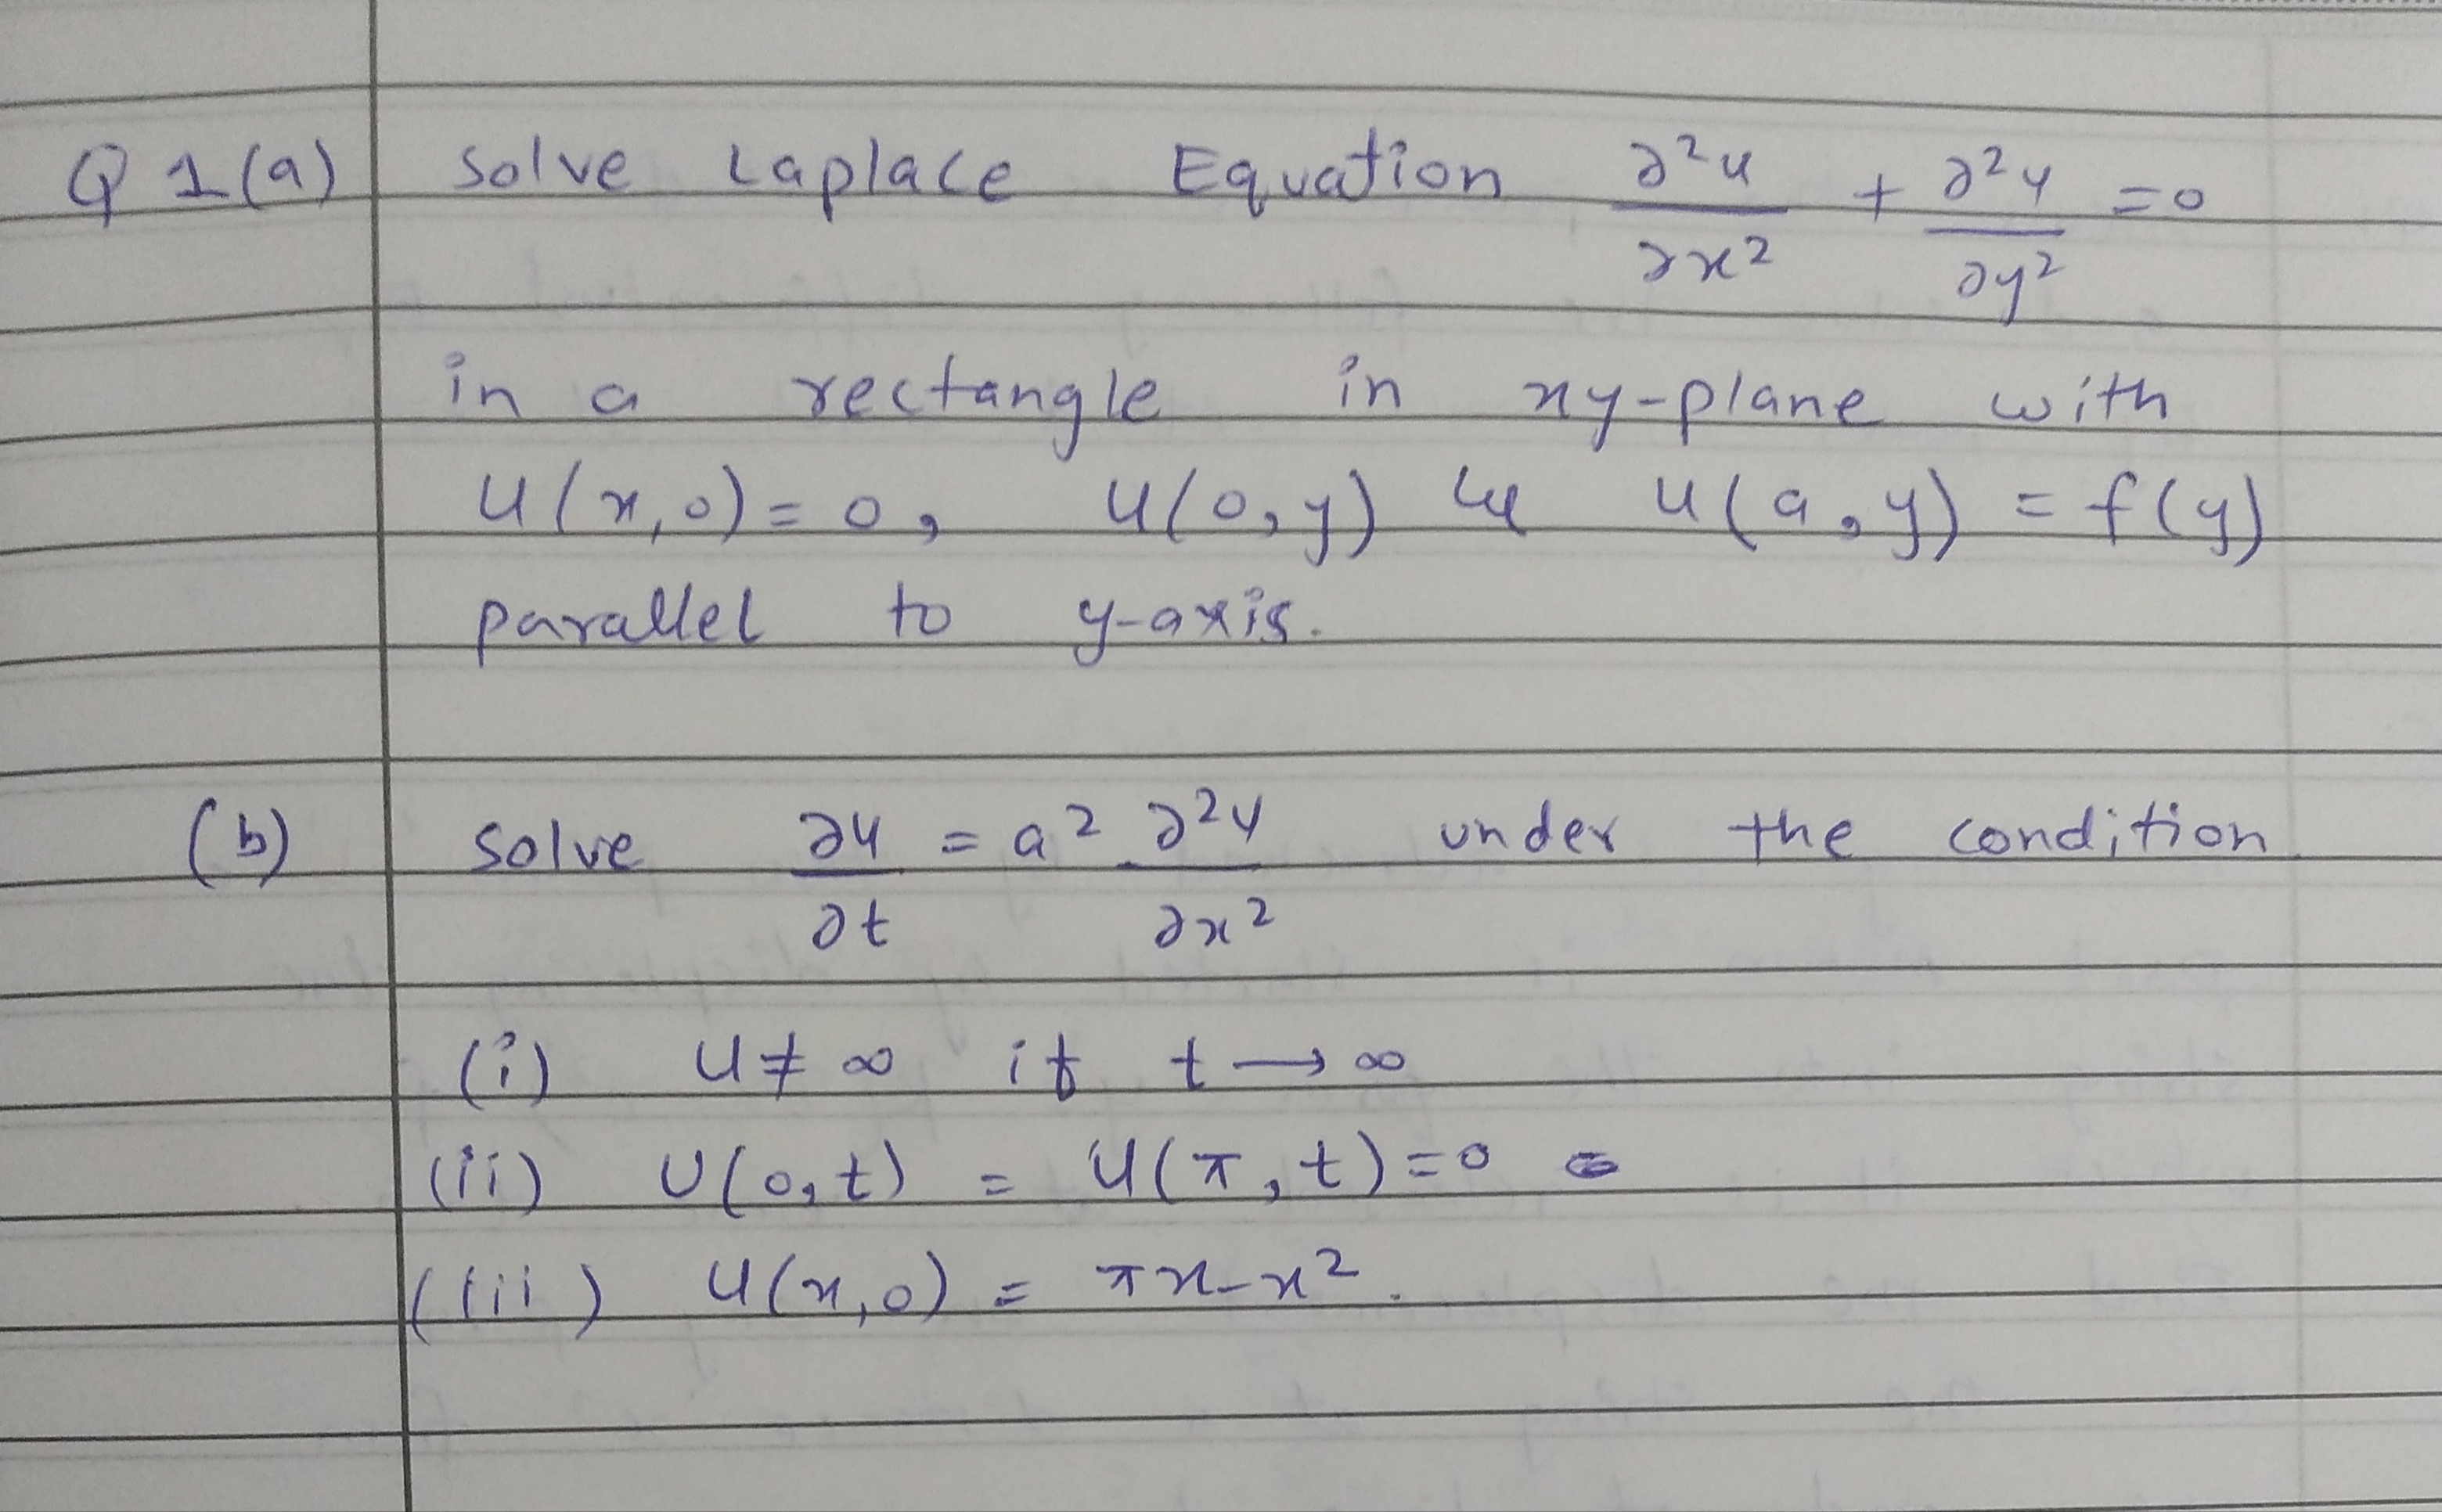 Q 1(a) Solve Laplace Equation ∂²u/∂x² + ∂²u/∂y² = 0
in a rectangle in xy-plane with
u(x,0) = 0, u(0,y) u(a,y) = f(y)
parallel to y-axis.
(b) Solve ∂u/∂t = a² ∂²u/∂x² under the condition
(i) u ≠ ∞ if t → ∞
(ii) U(0,t) = u(π,t) = 0
(iii) u(x,0) = πx - x².